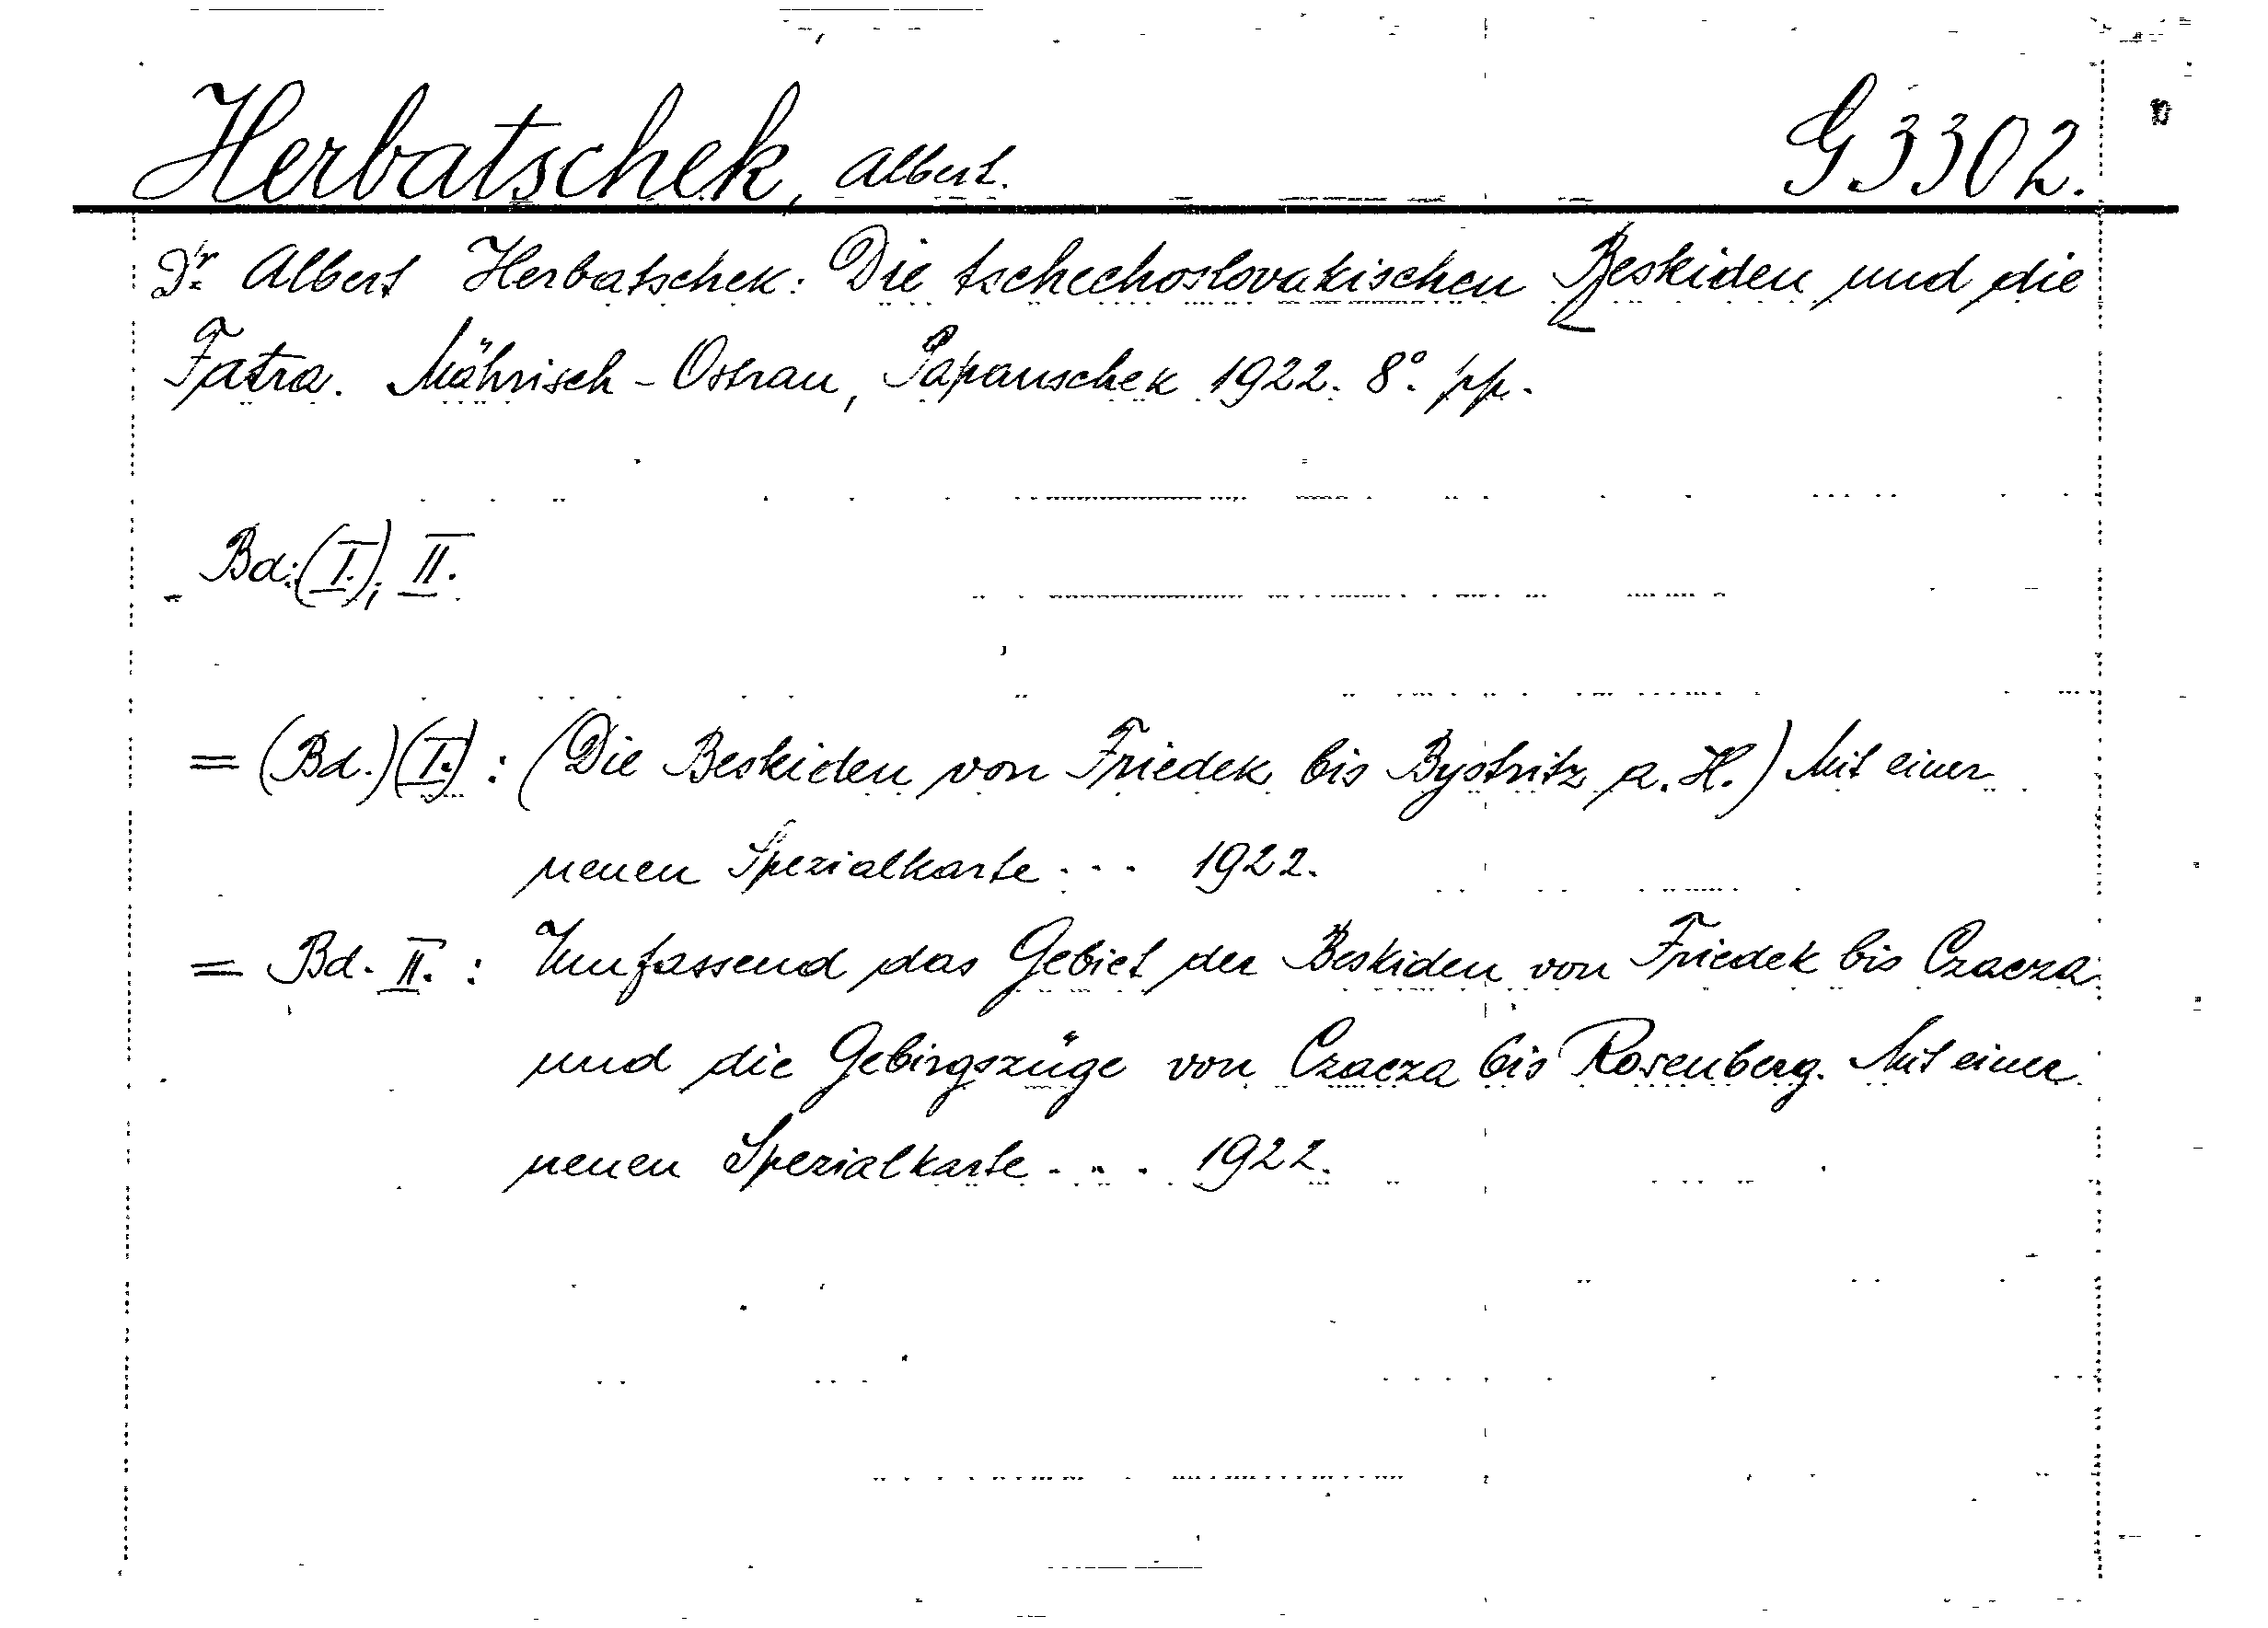 Herbatschek, Albert. G 3302.
Dr. Albert Herbatschek: Die tschechoslovakischen Beskiden und die
Fatra. Mährisch-Ostrau, Papauschek 1922. 8°. pp.
Bd:(I.), II.
= (Bd.)(I.) : (Die Beskiden von Friedek bis Bystritz a. H.) Mit einer
neuen Spezialkarte ... 1922.
= Bd. II. : Umfassend das Gebiet der Beskiden von Friedek bis Czacza
und die Gebirgszüge von Czacza bis Rosenberg. Mit einer
neuen Spezialkarte ... 1922.